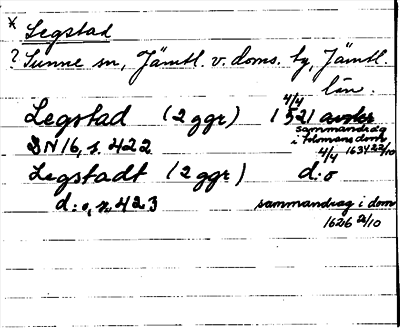 * Legstad
? Sunne sn, Jämtl. v. doms. hg, Jämtl.
län.
Legstad (2 ggr) 4/4 1521 avskr
sammandrag
i tolvmans dom
DN 16, s. 422 4/4 1634 22/10
Legstadt (2 ggr) d:o
d:o, s. 423 sammandrag i dom
1626 2/10